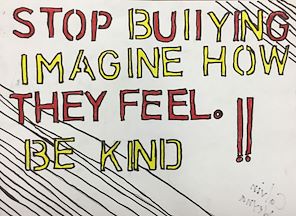 STOP BUllYING
IMAGINE HOW
THEY FEEL.
BE KIND !!